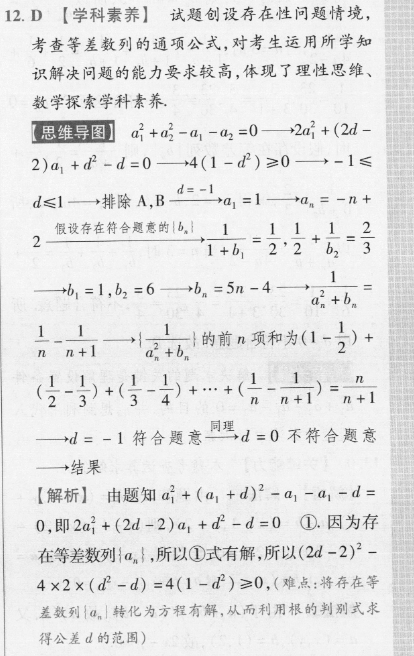 12. D 【学科素养】 试题创设存在性问题情境,
考查等差数列的通项公式,对考生运用所学知
识解决问题的能力要求较高,体现了理性思维、
数学探索学科素养.
【思维导图】 a₁²+a₂²-a₁-a₂=0⟶2a₁²+(2d-
2)a₁+d²-d=0⟶4(1-d²)≥0⟶-1≤
d≤1⟶排除A,B \xrightarrow{d=-1} a₁=1⟶aₙ=-n+
2 \xrightarrow{假设存在符合题意的{bₙ}} \frac{1}{1+b₁}=\frac{1}{2},\frac{1}{2}+\frac{1}{b₂}=\frac{2}{3}
⟶b₁=1,b₂=6⟶bₙ=5n-4⟶\frac{1}{aₙ²+bₙ}=
\frac{1}{n}-\frac{1}{n+1}⟶{\frac{1}{aₙ²+bₙ}}的前n项和为(1-\frac{1}{2})+
(\frac{1}{2}-\frac{1}{3})+(\frac{1}{3}-\frac{1}{4})+⋯+(\frac{1}{n}-\frac{1}{n+1})=\frac{n}{n+1}
⟶d=-1符合题意 \xrightarrow{同理} d=0不符合题意
⟶结果
【解析】 由题知a₁²+(a₁+d)²-a₁-a₁-d=
0,即2a₁²+(2d-2)a₁+d²-d=0 ①.因为存
在等差数列{aₙ},所以①式有解,所以(2d-2)²-
4×2×(d²-d)=4(1-d²)≥0,(难点:将存在等
差数列{aₙ}转化为方程有解,从而利用根的判别式求
得公差d的范围)